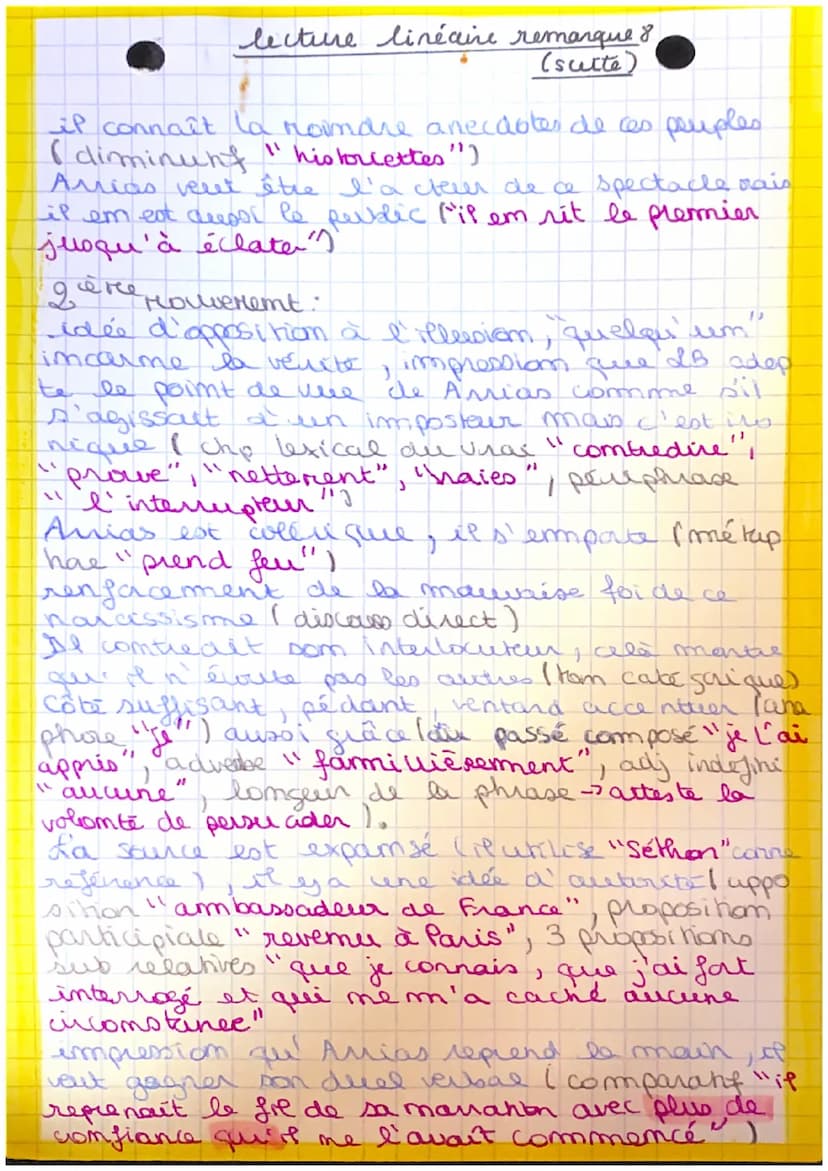 lecture linéaire remarque 8
(suite)
il connaît la moindre anecdotes de ces peuples
(diminutif "historiettes")
Arrias veut être l'acteur de ce spectacle mais
il em est aussi le public ("il em rit le premier
jusqu'à éclater")
2ième mouvement :
idée d'opposition à l'illusion, "quelqu'um"
imcarme la vérité, impression que LB adop
te le point de vue de Arrias comme s'il
s'agissait d'un imposteur mais c'est iro
nique (chp lexical du vrai "comtredire",
"prouve", "nettement", "vraies", périphrase
"l'interrupteur")
Arrias est colérique, il s'emporte (métap
hore "prend feu")
renforcement de la mauvaise foi de ce
narcissisme (discours direct)
Il comtredit som interlocuteur, celà montre
qu'il n'écoute pas les autres (tom catégorique)
Côté suffisant, pédant, ventard accentuer (ana
phore "je") aussi grâce (au passé composé "je l'ai
appris", adverbe "famillièrement", adj indéfini
"aucune", lomgeur de la phrase → atteste la
volomté de persuader).
La source est expamsé (il utilise "Séthon" comme
référence), il y a une idée d'autorité (appo
sition "ambassadeur de France", proposition
participiale "revemu à Paris", 3 propositions
sub relatives "que je connais, que j'ai fort
interrogé et qui me m'a caché aucune
circomstance"
impression qu'Arrias reprend la main, il
veut gagner som duel verbal (comparatif "il
reprenait le fil de sa marration avec plus de
comfiance qu'il me l'avait commemcé")